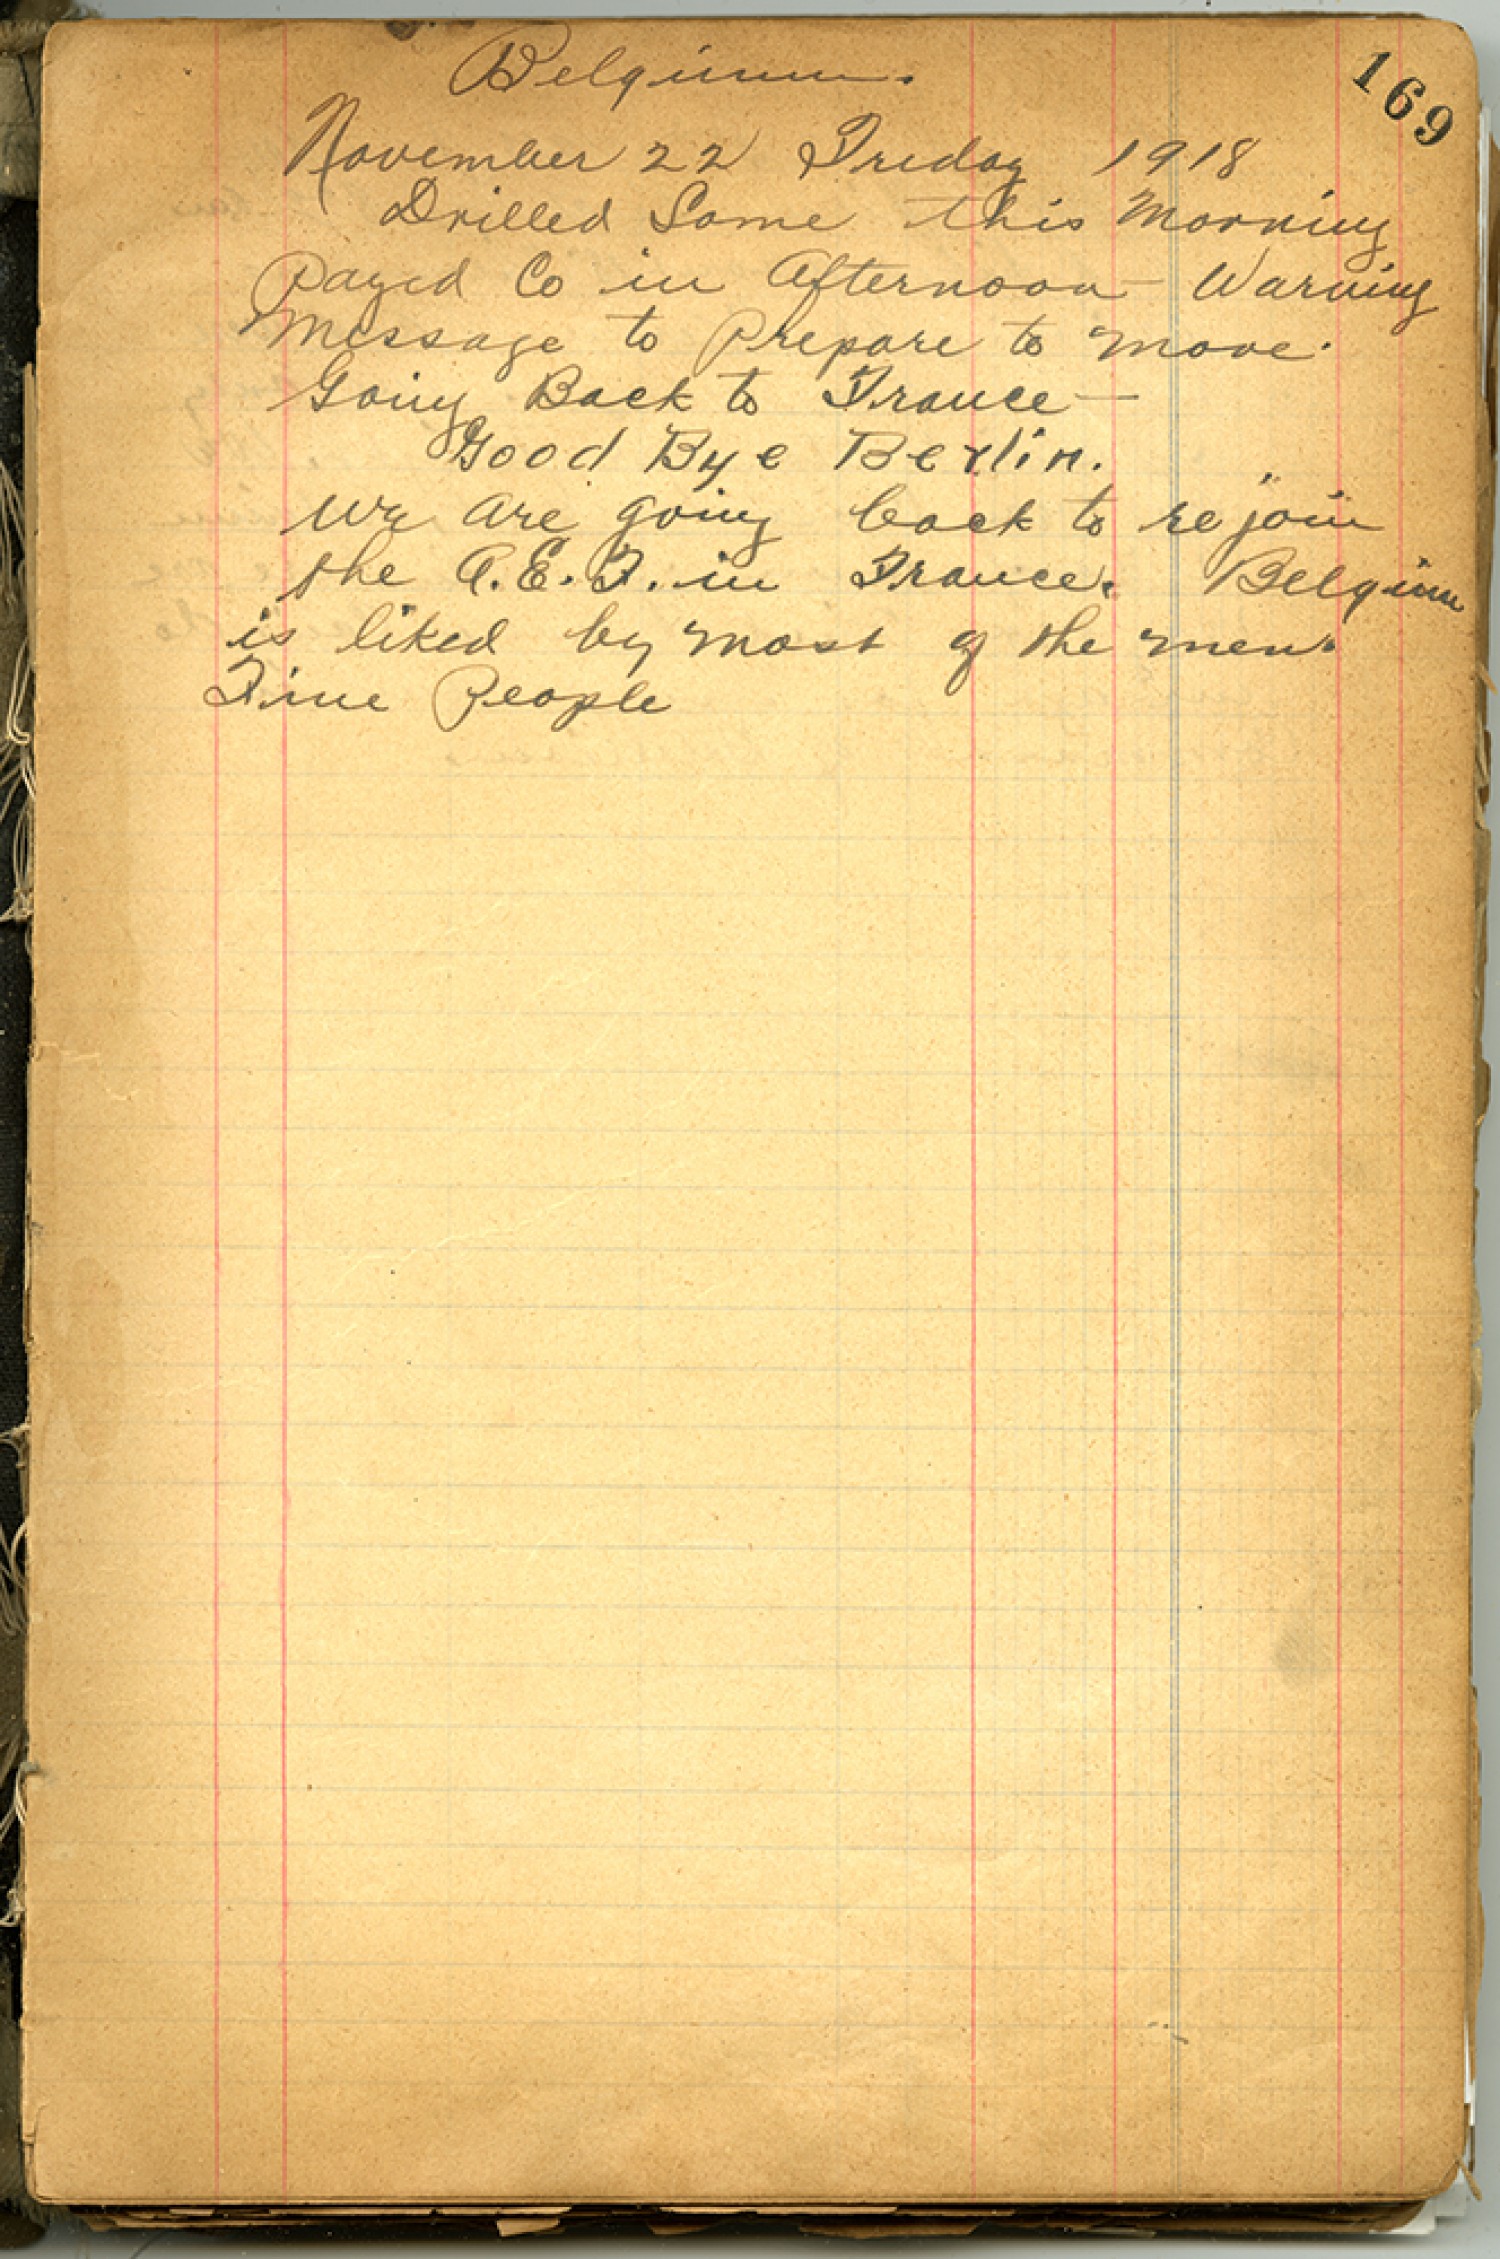 169
Belgium.
November 22 Friday 1918
Drilled Some this Morning
Payed Co in Afternoon Warning
Message to Prepare to move.
Going Back to France—
Good Bye Berlin.
We are going back to re join
the A.E.F. in France. Belgium
is liked by most of the men.
Fine People